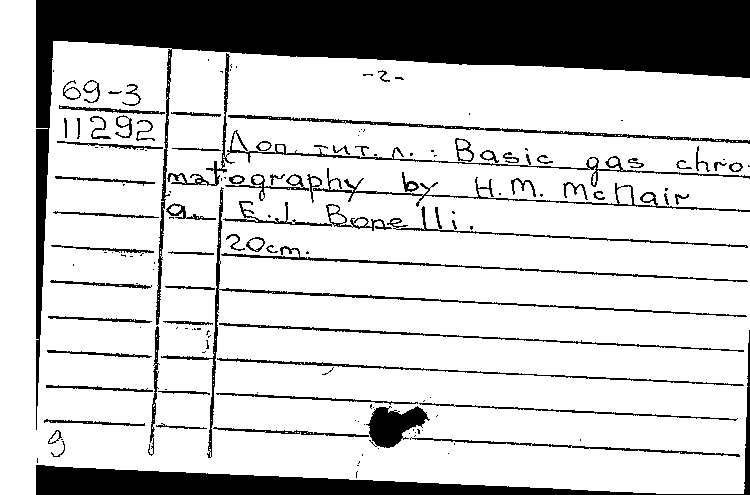 -2-
69-3
11292
Доп. тит. л. : Basic gas chro-
matography by H.M. McNair
a. E.J. Bonelli.
20cm.
9